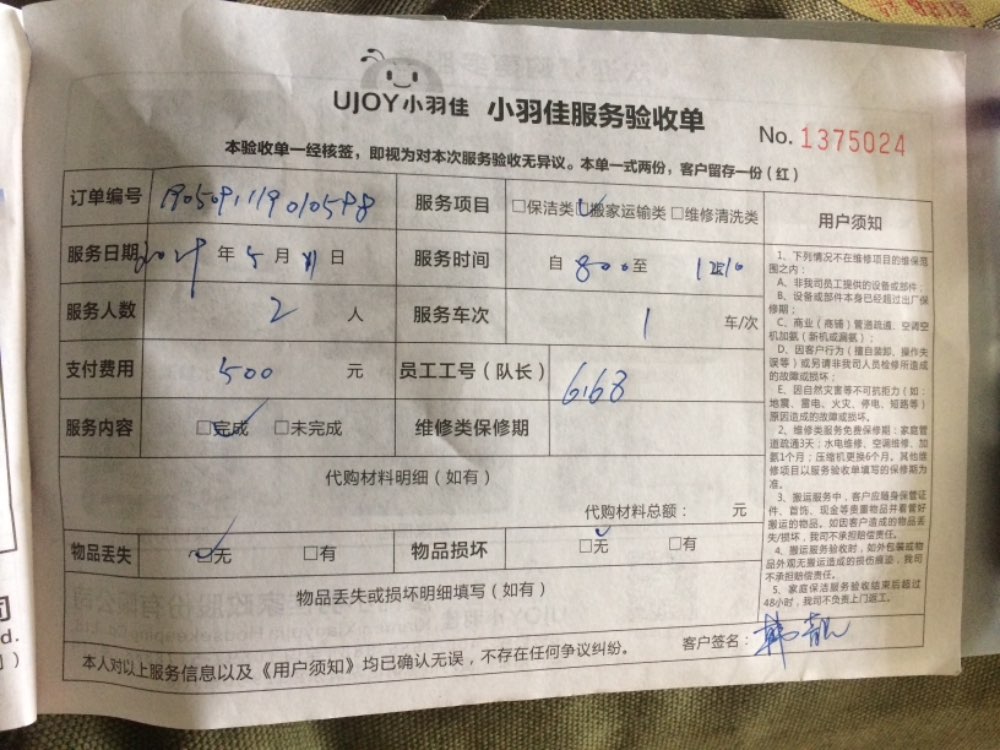 UJOY小羽佳 小羽佳服务验收单
No. 1375024
本验收单一经核签，即视为对本次服务验收无异议。本单一式两份，客户留存一份（红）
订单编号 服务项目 □保洁类 □搬家运输类 □维修清洗类
服务日期 年 5 月 日 服务时间 自 800 至
服务人数 2 人 服务车次 1 车/次
支付费用 500 元 员工工号（队长） 668
服务内容 □完成 □未完成 维修类保修期
代购材料明细（如有）
代购材料总额： 元
物品丢失 □无 □有 物品损坏 □无 □有
物品丢失或损坏明细填写（如有）
客户签名：韩靓
本人对以上服务信息以及《用户须知》均已确认无误，不存在任何争议纠纷。
用户须知
1、下列情况不在维修项目的维保范
围之内：
A、非我司员工提供的设备或部件；
B、设备或部件本身已经超过出厂保
修期；
C、商业（商铺）管道疏通、空调空
机加氨（新机或漏氨）；
D、因客户行为（擅自装卸、操作失
误等）或另请非我司人员检修所造成
的故障或损坏；
E、因自然灾害等不可抗拒力（如：
地震、雷电、火灾、停电、短路等）
原因造成的故障或损坏。
2、维修类服务免费保修期：家庭管
道疏通3天；水电维修、空调维修、加
氨1个月；压缩机更换6个月。其他维
修项目以服务验收单填写的保修期为
准。
3、搬运服务中，客户应随身保管证
件、首饰、现金等贵重物品并看管好
搬运的物品。如因客户造成的物品丢
失/损坏，我司不承担赔偿责任。
4、搬运服务验收时，如外包装或物
品外观无搬运造成的损伤痕迹，我司
不承担赔偿责任。
5、家庭保洁服务验收结束后超过
48小时，我司不负责上门返工。